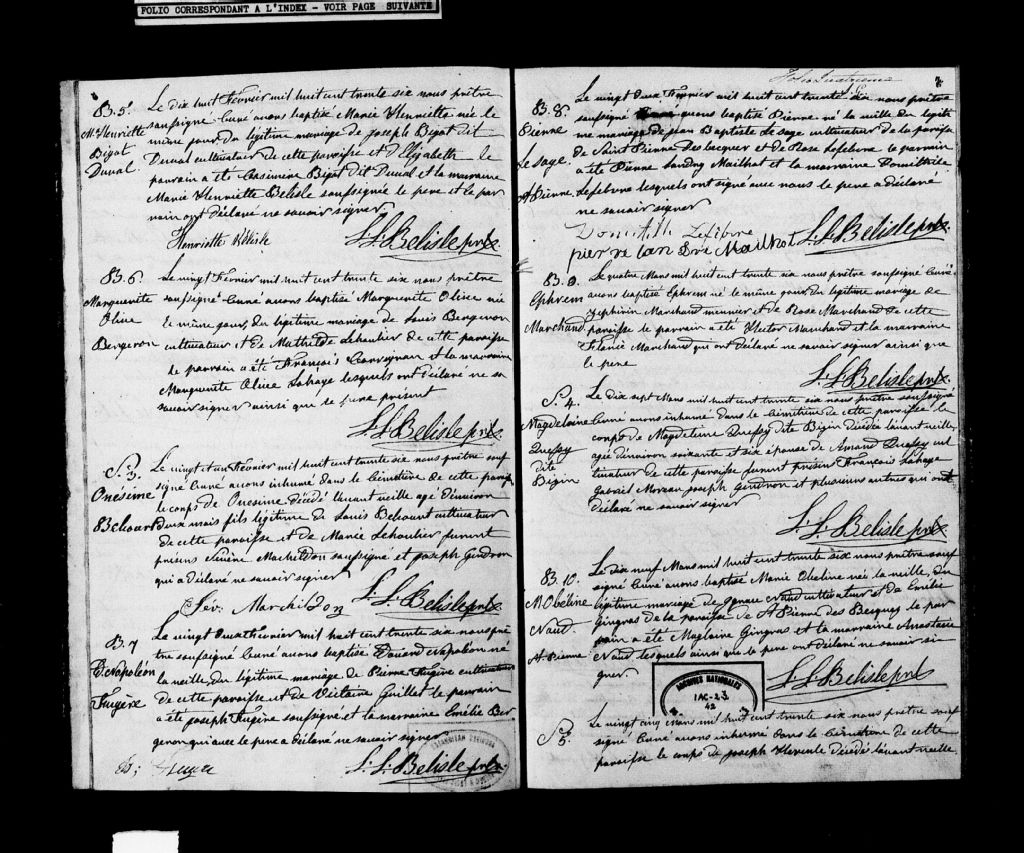 FOLIO CORRESPONDANT A L'INDEX - VOIR PAGE SUIVANTE
B. 5.
M. Henriette
Bigot
Duval
Le dix huit Février mil huit cent trente six nous prêtre
soussigné Curé avons baptisé Marie Henriette née le
même jour, du légitime mariage de Joseph Bigot dit
Duval cultivateur de cette paroisse et d'Elizabeth le
parrain a été Casimire Bigot dit Duval et la marraine
Marie Henriette Belisle soussignée le pere et le par
rain ont déclaré ne savoir signer
Henriette Bélisle
L. S. Belisle ptre
B. 6.
Marguerite
Olive
Bergeron
Le vingt Février mil huit cent trente six nous prêtre
soussigné Curé avons baptisé Marguerite Olive née
le même jour, du légitime mariage de Louis Bergeron
cultivateur et de Mathilde Lehoulier de cette paroisse
le parrain a été François Corrignan et la marraine
Marguerite Olive Lahaye lesquels ont déclaré ne sa
savoir signer ainsi que le pere présent
L. S. Belisle ptre
S. 3.
Onésime
Belcourt
Le vingt et un Février mil huit cent trente six nous prêtre sous
signé Curé avons inhumé dans le Cimetière de cette paroisse
le corps de Onesime décédé l'avant veille agé d'environ
deux mois fils légitime de Louis Belcourt cultivateur
de cette paroisse et de Marie Lehoulier furent
présens Sévère Marcheldon soussigné et joseph Gendron
qui a déclaré ne savoir signer
Sév. Marchildon
L. S. Belisle ptre
B. 7
E. Napoléon
Fugère
Le vingt Février mil huit cent trente six nous prê
tre soussigné Curé avons baptisé Edouard Napoléon né
la veille, du légitime mariage de Pierre Fugère cultivateur
de cette paroisse et de Victoire Guillet le parrain
a été joseph Fugère soussigné et la marraine Emélie Ber
geron qui avec le pere a déclaré ne savoir signer
L. S. Belisle ptre
Folio Quatrieme
B. 8.
Pierre
Le Sage
St Pierre
Le vingt deux Février mil huit cent trente six nous prêtre
soussigné avons baptisé Pierre né la veille du légiti
me mariage de Jean Baptiste Le sage cultivateur de la paroisse
de Saint Pierre des becquet et de Rose Lefebvre le parrain
a été Pierre Landry Mailhot et la marraine Domithile
Lefebvre lesquels ont signé avec nous le pere a déclaré
ne savoir signer
Domitille Lefebvre
pierre lan Dre Mailhot
L. S. Belisle ptre
B. 9.
Ephrem
Marchand
Le quatre Mars mil huit cent trente six nous prêtre soussigné Curé
avons baptisé Ephrem né le même jour du légitime mariage de
Zephirin Marchand meunier et de Rose Marchand de cette
paroisse le parrain a été Hector Marchand et la marraine
Marchand qui ont déclaré ne savoir signer ainsi que
le pere
L. S. Belisle ptre
S. 4.
Magdeleine
Quessy
dite
Bigin
Le dix sept Mars mil huit cent trente six nous prêtre soussigné
Curé avons inhumé dans le Cimetière de cette paroisse le
corps de Magdeleine Quessy dite Bigin décédée l'avant veille,
agée d'environ soixante et six épouse de Amand Quessy cul
tivateur de cette paroisse furent présens François Lahaye
Gabriel Moreau joseph Gendron et plusieurs autres qui ont
déclaré ne savoir signer
L. S. Belisle ptre
B. 10.
M. Obéline
Naud
St Pierre
Le dix neuf Mars mil huit cent trente six nous prêtre sous
signé Curé avons baptisé Marie Obeline née la veille, du
légitime mariage de Naud cultivateur et de Emélie
Gingras de la paroisse de St Pierre des Becquet le par
rain a été Maglaire Gingras et la marraine Anastasie
Naud lesquels ainsi que le pere ont déclaré ne savoir si
gner
L. S. Belisle ptre
ARCHIVES NATIONALES
1AC-23
42
S. 5.
Le vingt cinq Mars mil huit cent trente six nous prêtre sous
signé Curé avons inhumé dans le Cimetière de cette
paroisse le corps de joseph décédé l'avant veille,